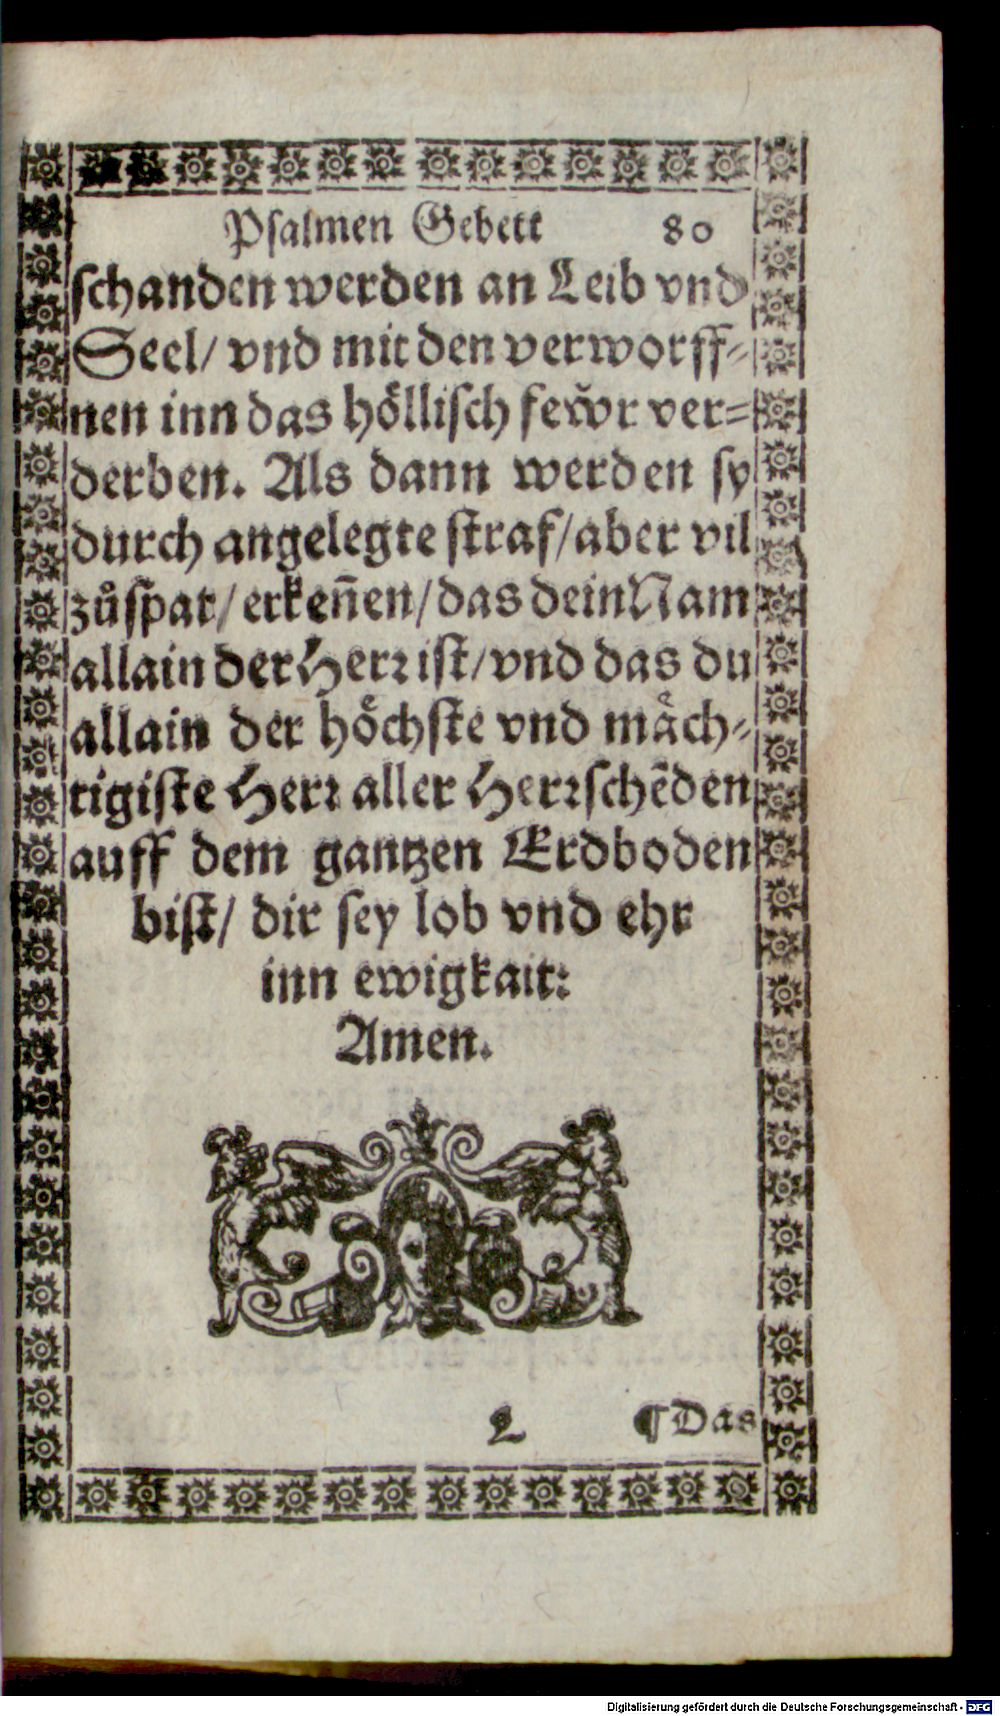 Psalmen Gebett 80
schanden werden an Leib vnd
Seel/ vnd mit den verworff-
nen inn das höllisch fewͦr ver-
derben. Als dann werden sy
durch angelegte straf/aber vil
zůspat/ erkeñen/das dein Nam
allain der Herr ist/vnd das du
allain der höchste vnd mäch-
tigiste Herr aller Herrschēden
auff dem gantzen Erdboden
bist/ dir sey lob vnd ehr
inn ewigkait:
Amen.
L ¶Das
Digitalisierung gefördert durch die Deutsche Forschungsgemeinschaft - DFG